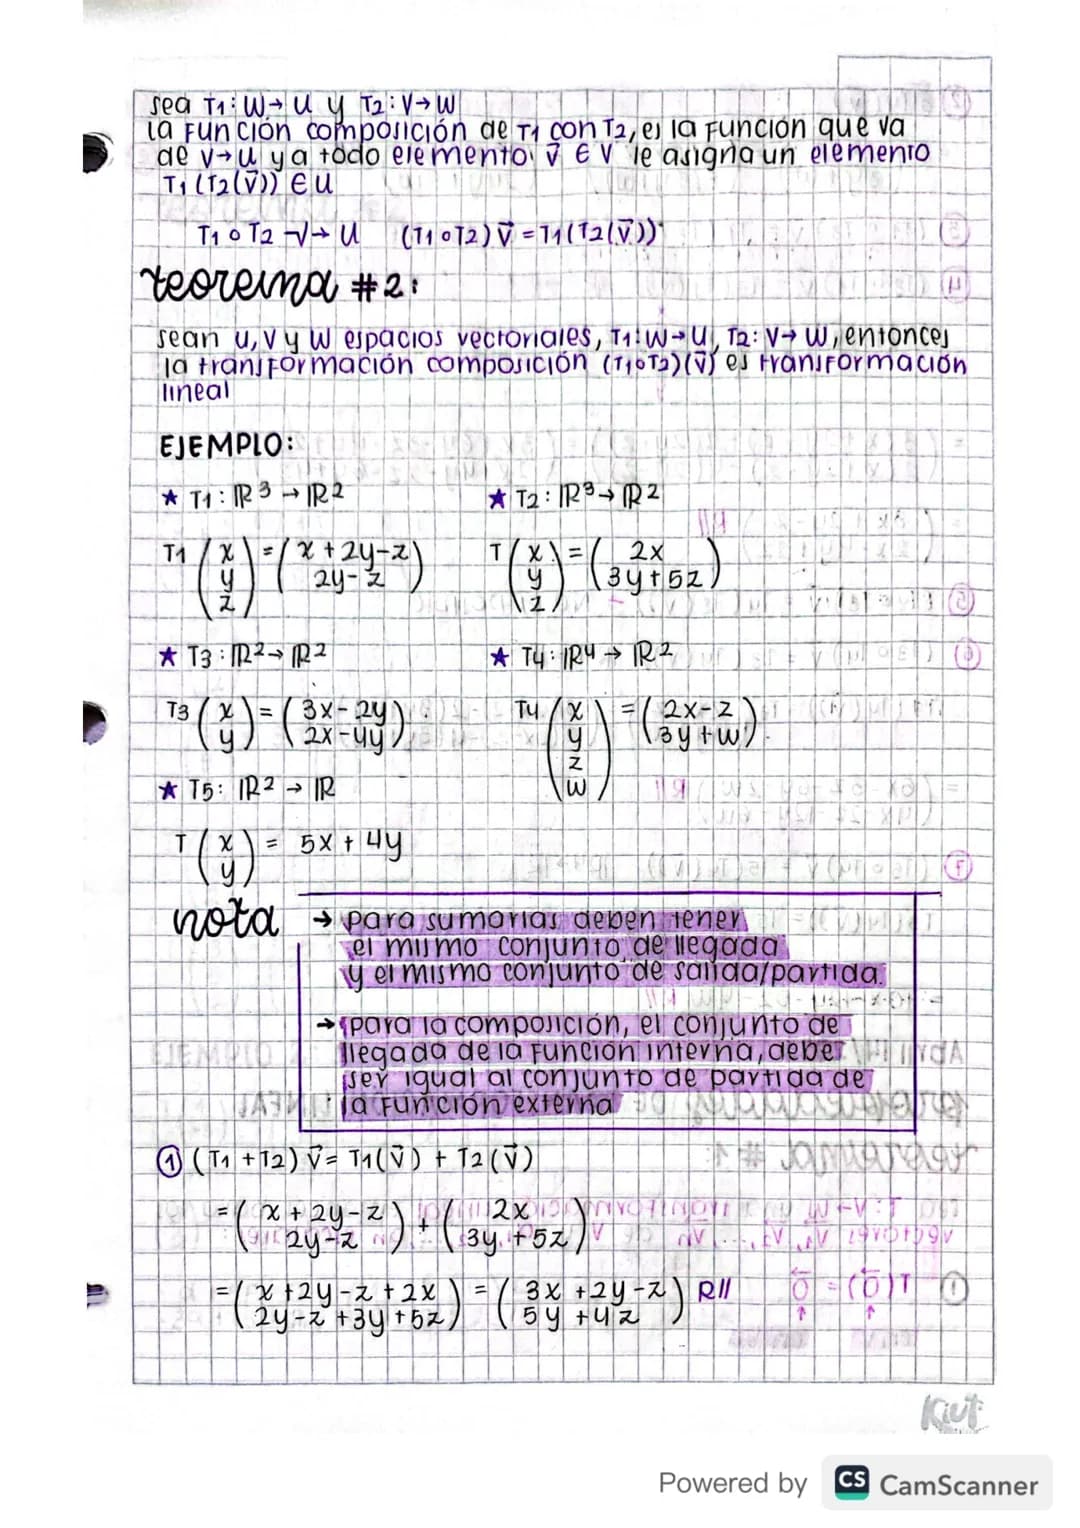 sea T1: W→ U y T2: V→W
la Función composición de T1 con T2, es la Función que va
de V→U y a todo elemento v⃗ ∈ V le asigna un elemento
T1(T2(v⃗)) ∈ U
T1 ∘ T2 V→ U (T1∘T2) v⃗ = T1(T2(v⃗))
teorema #2:
sean U, V y W espacios vectoriales, T1: W→U, T2: V→ W, entonces
la transformación composición (T1∘T2)(v⃗) es transformación
lineal
EJEMPLO:
★ T1: ℝ3 → ℝ2 ★ T2: ℝ3→ ℝ2
T1 (x y z) = (x + 2y - z 2y - z) T (x y z) = (2x 3y + 5z)
★ T3: ℝ2→ ℝ2 ★ T4: ℝ4 → ℝ2
T3 (x y) = (3x - 2y 2x - 4y) T4 (x y z w) = (2x - z 3y + w).
★ T5: ℝ2 → ℝ
T (x y) = 5x + 4y
nota → para sumarlas deben tener
el mismo conjunto de llegada
y el mismo conjunto de salida/partida.
→ para la composición, el conjunto de
llegada de la Función interna, debe
ser igual al conjunto de partida de
la Función externa
① (T1 + T2) v⃗ = T1(v⃗) + T2(v⃗)
= (x + 2y - z 2y - z) + (2x 3y + 5z)
= (x + 2y - z + 2x 2y - z + 3y + 5z) = (3x + 2y - z 5y + 4z) R//
Kiut
Powered by CS CamScanner